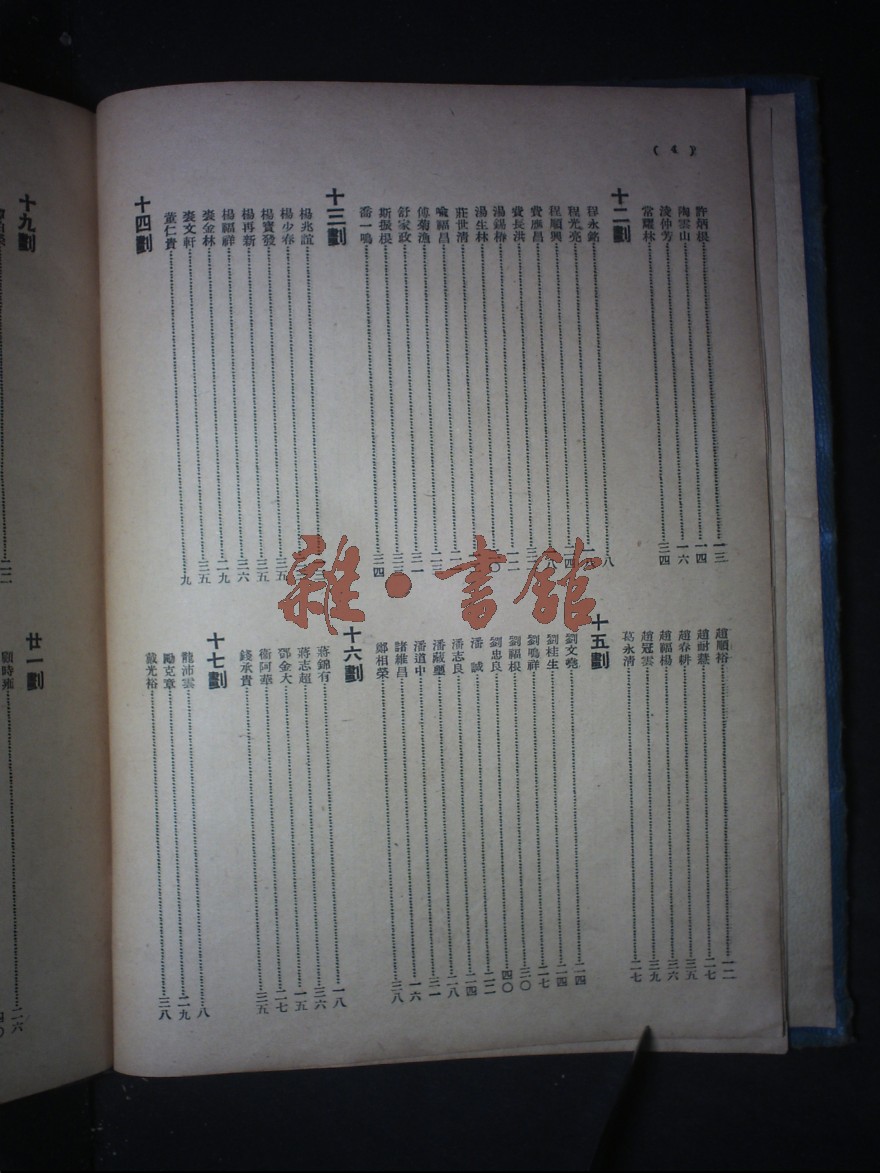 ( 4 )
許炳根……一三
陶雲山……一四
凌仲芳……一六
常耀林……三四
十二劃
程永銘……八
程光亮……
程順興……
費應昌……
費長洪……
湯錫椿……一二
湯生林……
莊世清……
喻福昌……
傅菊漁……二三
舒家政……
斯振根……三三
喬一鳴……三四
十三劃
楊兆誼……
楊少春……
楊寶發……三五
楊再新……三五
楊福祥……三六
裘金林……二九
裘文軒……三五
董仁貴……九
十四劃
趙順裕……一二
趙耐……二七
趙春耕……三五
趙福楊……三六
趙冠雲……三九
葛永清……二七
十五劃
劉文堯……二四
劉桂生……一四
劉鳴祥……二七
劉福根……三〇
劉忠良……四〇
潘 誠……二二
潘志良……二四
潘……二八
潘道中……三一
諸維昌……一六
鄭相榮……三八
十六劃
蔣錦有……一八
蔣志超……三六
鄧金大……一五
衞阿華……二七
錢承貴……三五
十七劃
龍沛雲……八
勵克章……二九
戴光裕……三八
十九劃
二二
廿一劃
顧時雍……二六
雜·書館